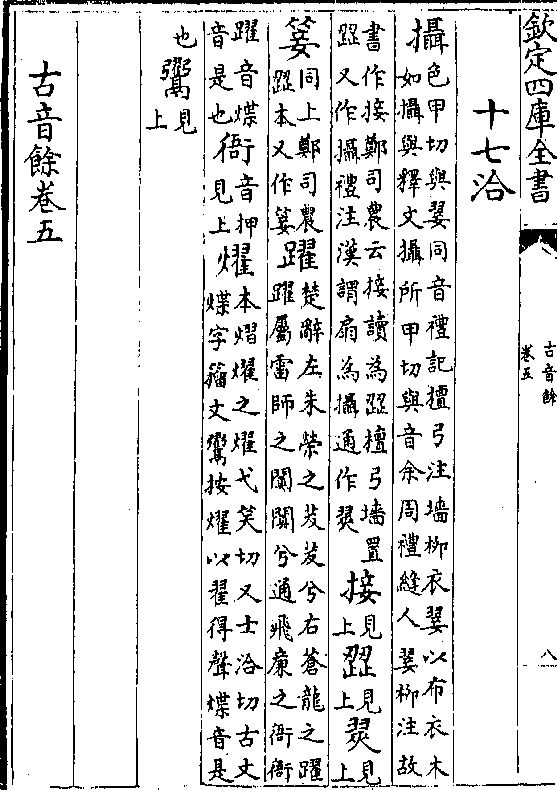 欽定四庫全書
古音餘
卷五
八
十七洽
攝色甲切與翣同音禮記檀弓注墻柳衣翣以布衣木
如攝與釋文攝所甲切與音余周禮縫人翣柳注故
書作接鄭司農云接讀為歰檀弓墻置
歰又作攝禮注漢謂扇為攝通作翣接見上歰見上翣見上
䈉同上鄭司農
歰本又作䈉躍楚辭左朱榮之茇茇兮右蒼龍之躍
躍屬雷師之闐闐兮通飛廉之衙衙
躍音煠衙音押燿本熠燿之燿弋笑切又士洽切古文
音是也見上煠字籀文鸑按燿以翟得聲煠音是
也鸑見上
古音餘卷五